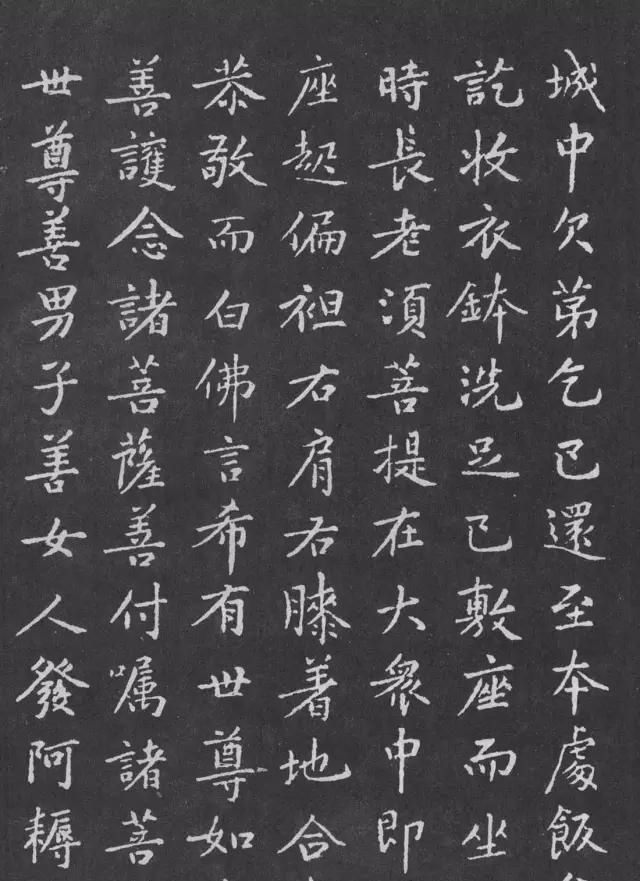 城中次第乞已還至本處飯
訖收衣鉢洗足已敷座而坐
時長老須菩提在大眾中即
座起偏袒右肩右膝着地合
恭敬而白佛言希有世尊如
善護念諸菩薩善付囑諸菩
世尊善男子善女人發阿耨